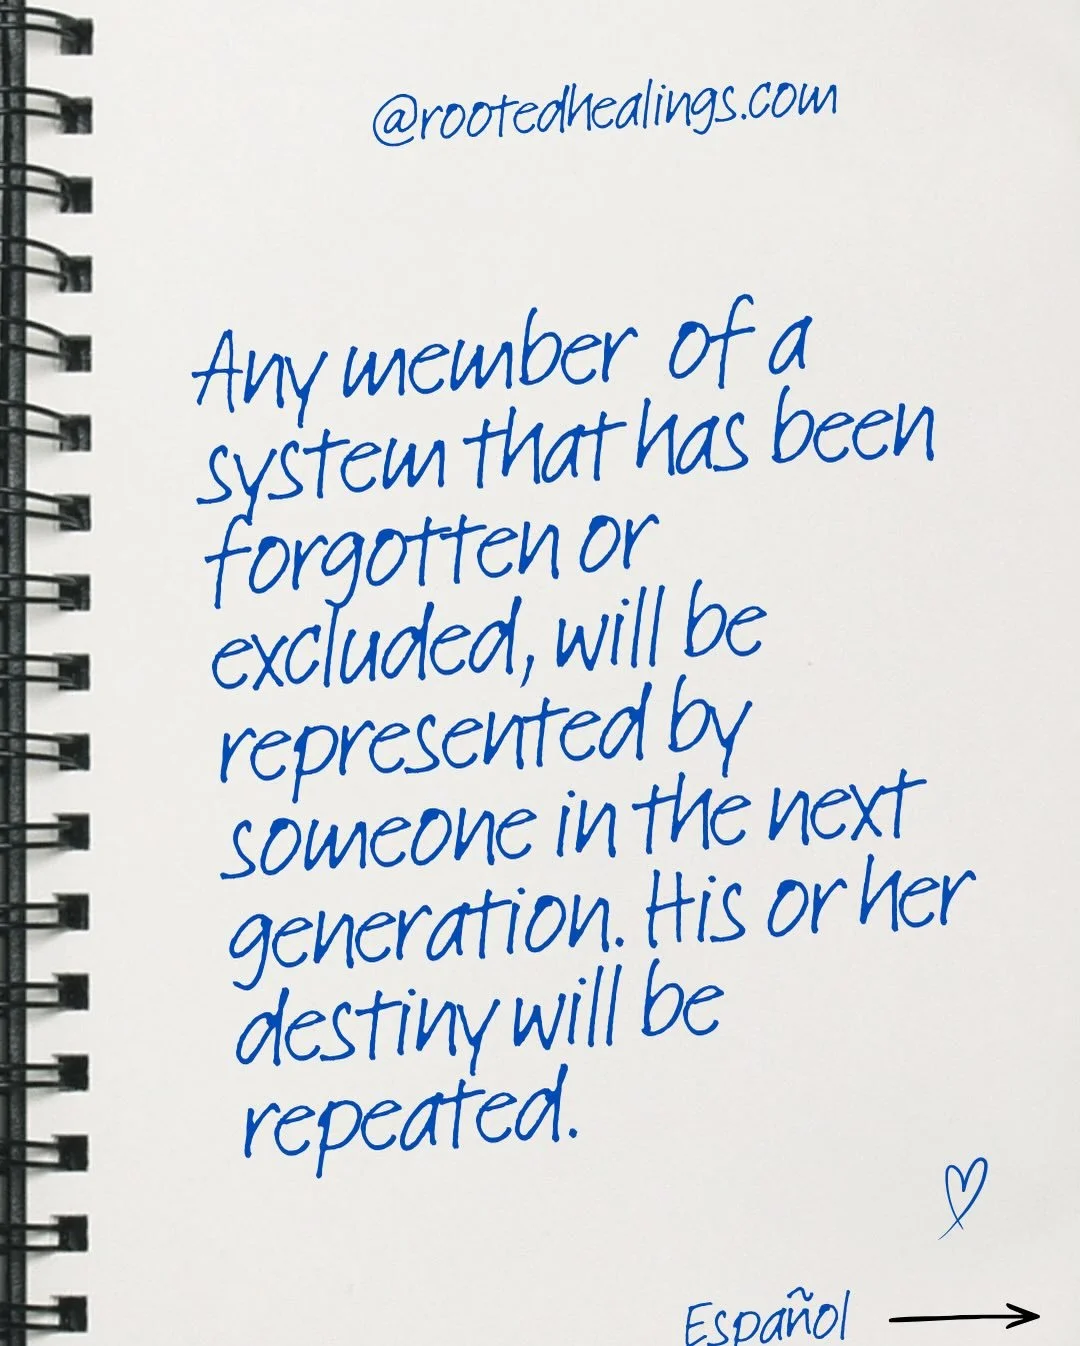 @rootedhealings.com
Any member of a
system that has been
forgotten or
excluded, will be
represented by
someone in the next
generation. His or her
destiny will be
repeated.
Español